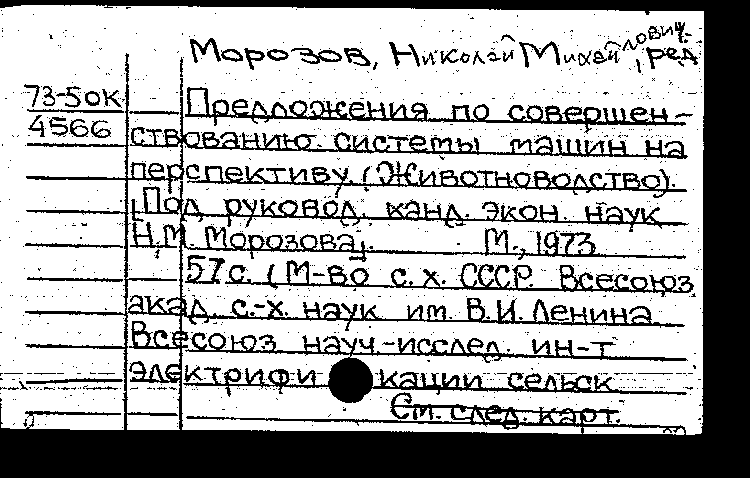 Морозов, Николай Михайлович, ред.
73-5ок
4566
Предложения по совершен-
ствованию системы машин на
перспективу. (Животноводство).
[Под руковод. канд. экон. наук
Н.М. Морозова]. М., 1973
57с. (М-во с.х. СССР. Всесоюз.
акад. с.-х. наук им. В.И. Ленина.
Всесоюз. науч.-исслед. ин-т
электрификации сельск.
См. след. карт.